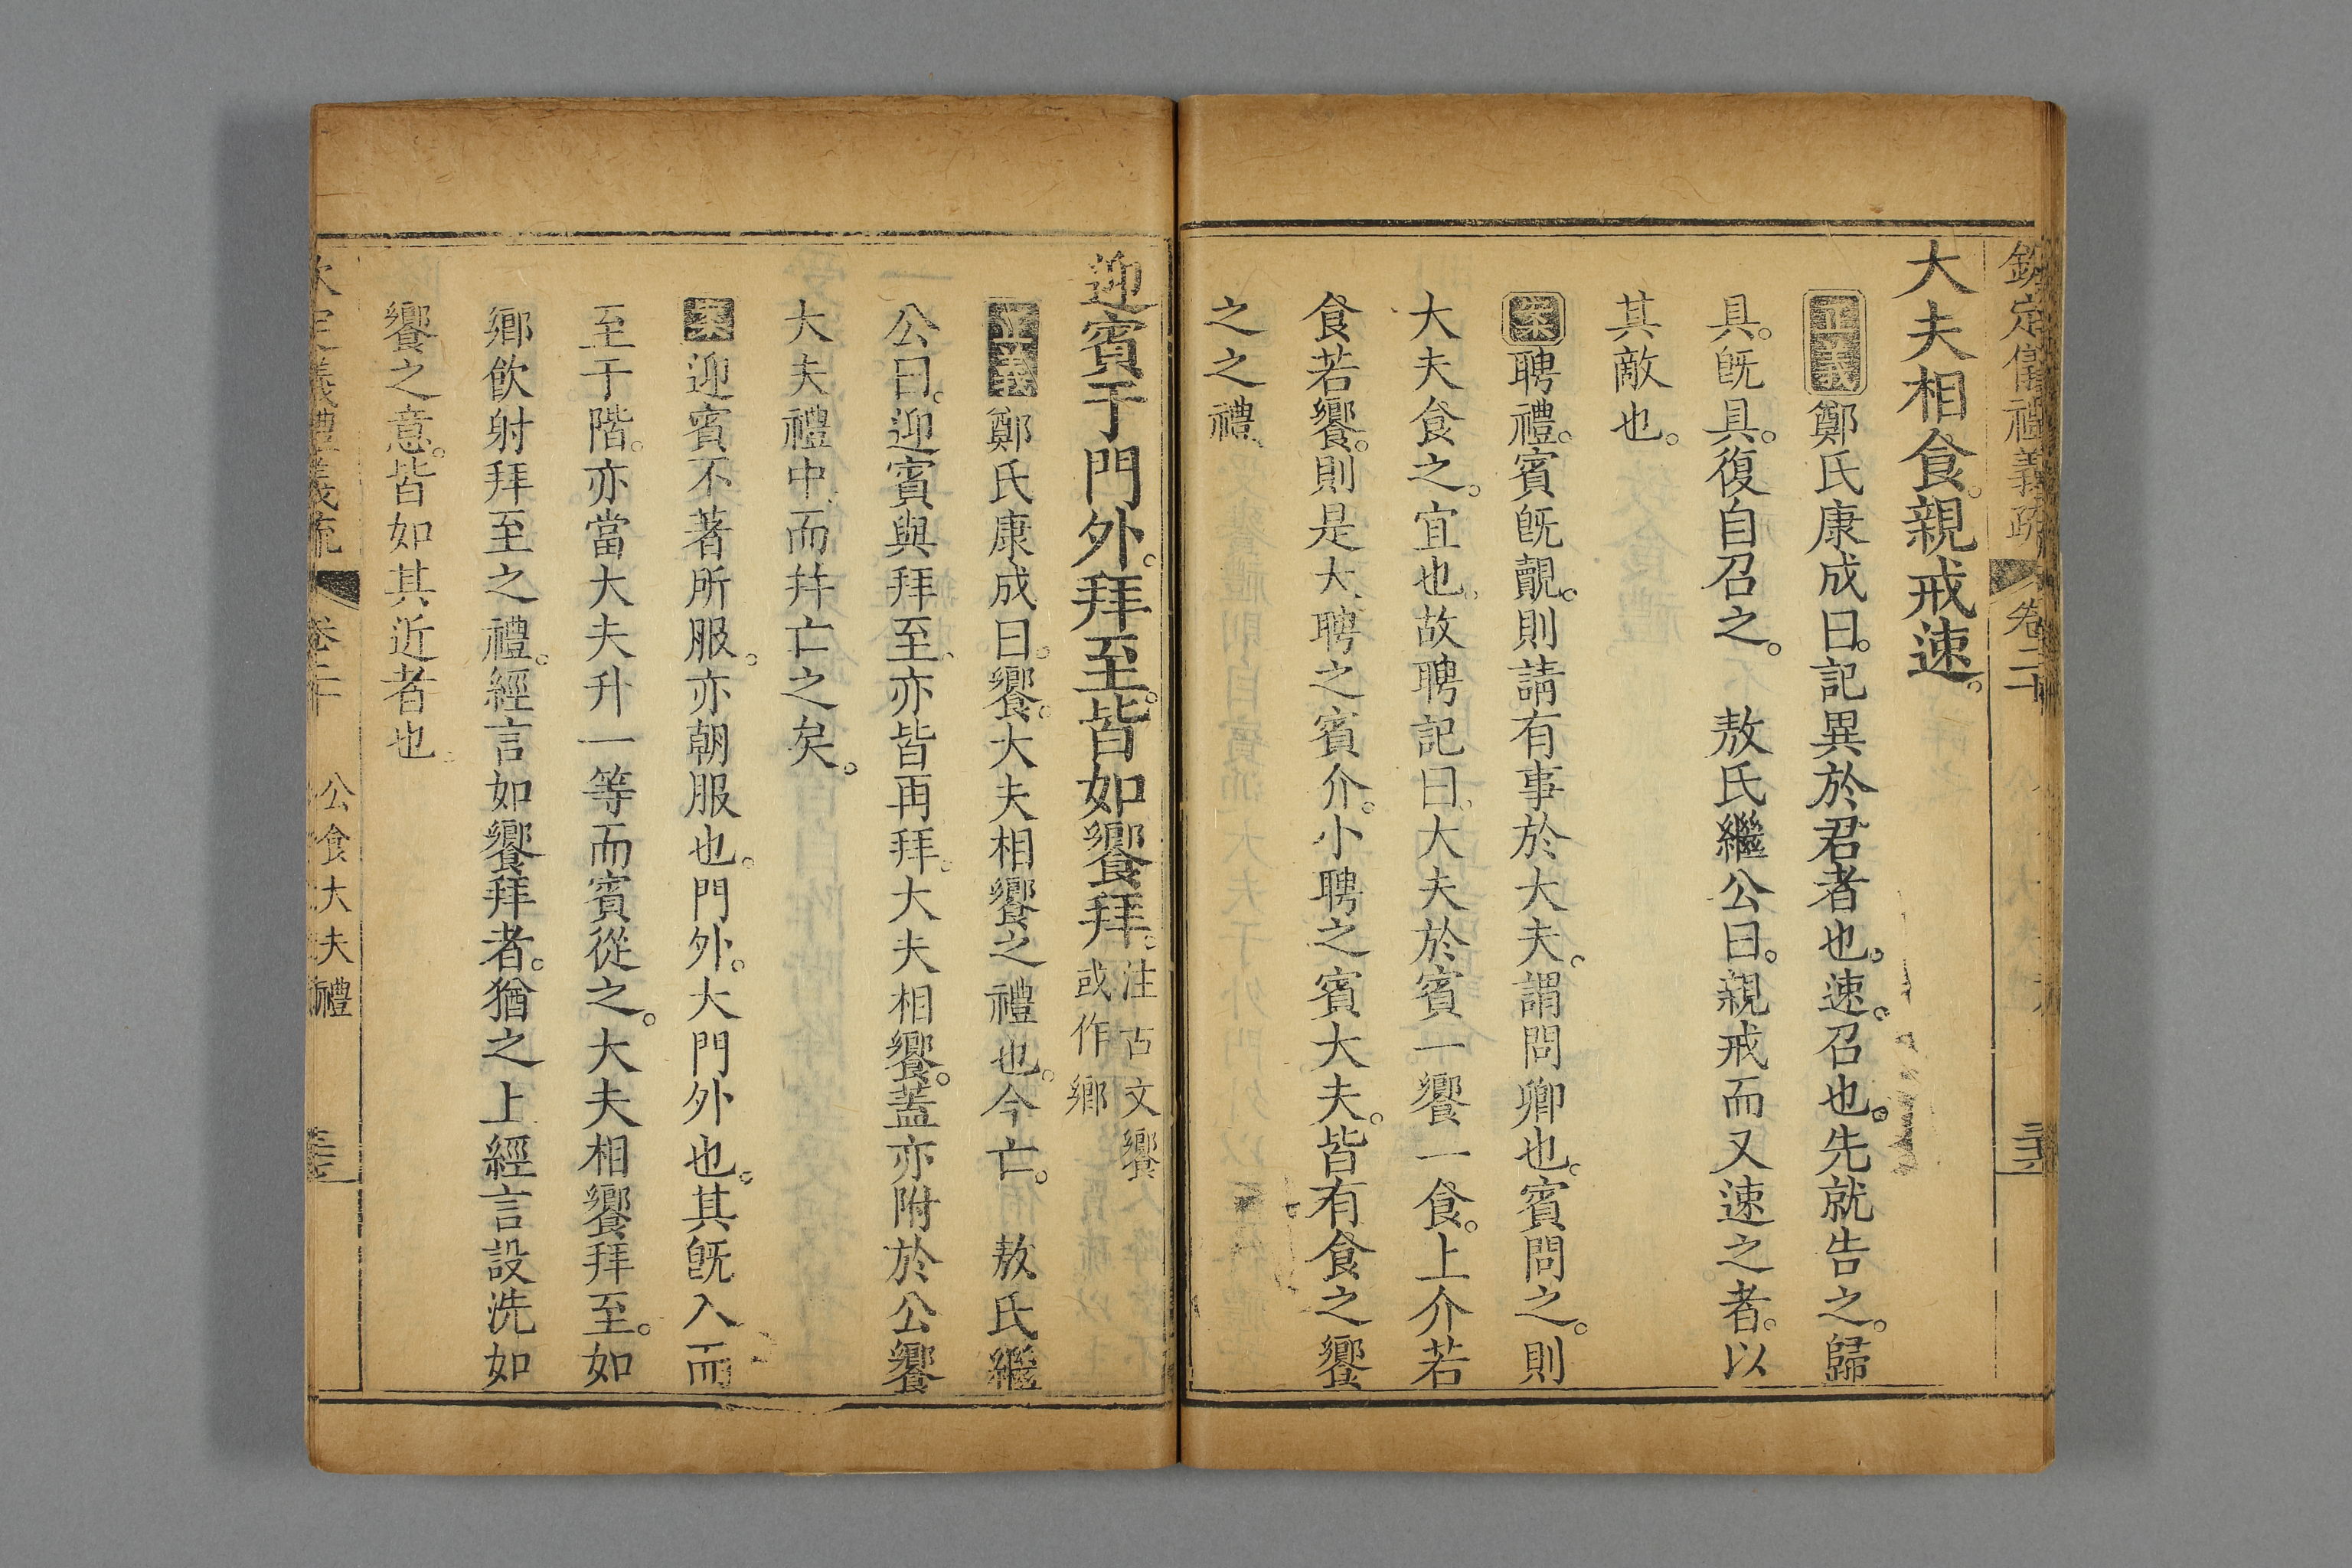 欽定儀禮義疏 卷二十
大夫相食。親戒速。
正義鄭氏康成曰。記異於君者也。速。召也。先就告之。歸
具。旣具。復自召之。 敖氏繼公曰。親戒而又速之者。以
其敵也。
案聘禮。賓旣覿。則請有事於大夫。謂問卿也。賓問之。則
大夫食之。宜也。故聘記曰。大夫於賓一饗一食。上介若
食若饗。則是大聘之賓介。小聘之賓大夫。皆有食之饗
之之禮。
迎賓于門外。拜至。皆如饗拜。注古文饗或作鄉
正義鄭氏康成曰。饗。大夫相饗之禮也。今亡。 敖氏繼
公曰。迎賓與拜至。亦皆再拜。大夫相饗。蓋亦附於公饗
大夫禮中。而幷亡之矣。
案迎賓不著所服。亦朝服也。門外。大門外也。其旣入而
至于階。亦當大夫升一等而賓從之。大夫相饗拜至。如
鄉飮射拜至之禮。經言如饗拜者。猶之上經言設洗如
饗之意。皆如其近者也。
欽定儀禮義疏 卷二十 公食大夫禮